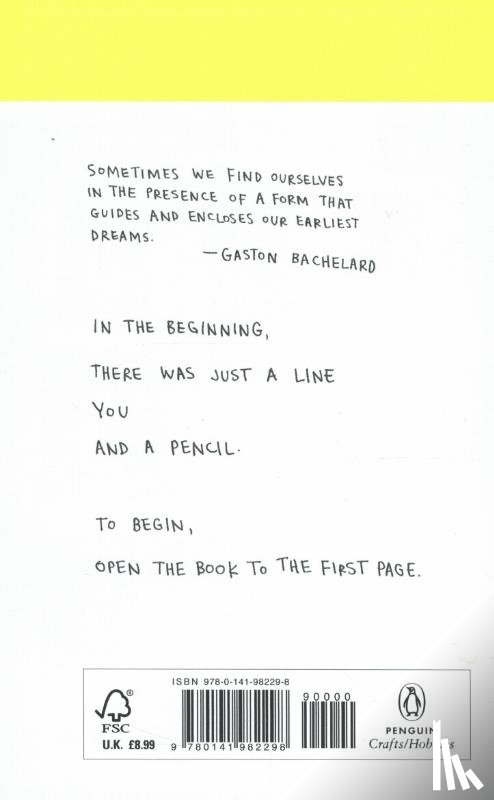 SOMETIMES WE FIND OURSELVES
IN THE PRESENCE OF A FORM THAT
GUIDES AND ENCLOSES OUR EARLIEST
DREAMS.
—GASTON BACHELARD
IN THE BEGINNING,
THERE WAS JUST A LINE
YOU
AND A PENCIL.
TO BEGIN,
OPEN THE BOOK TO THE FIRST PAGE.
ISBN 978-0-141-98229-8
90000
FSC
U.K. £8.99
9 780141 982298
PENGUIN
Crafts/Hobbies